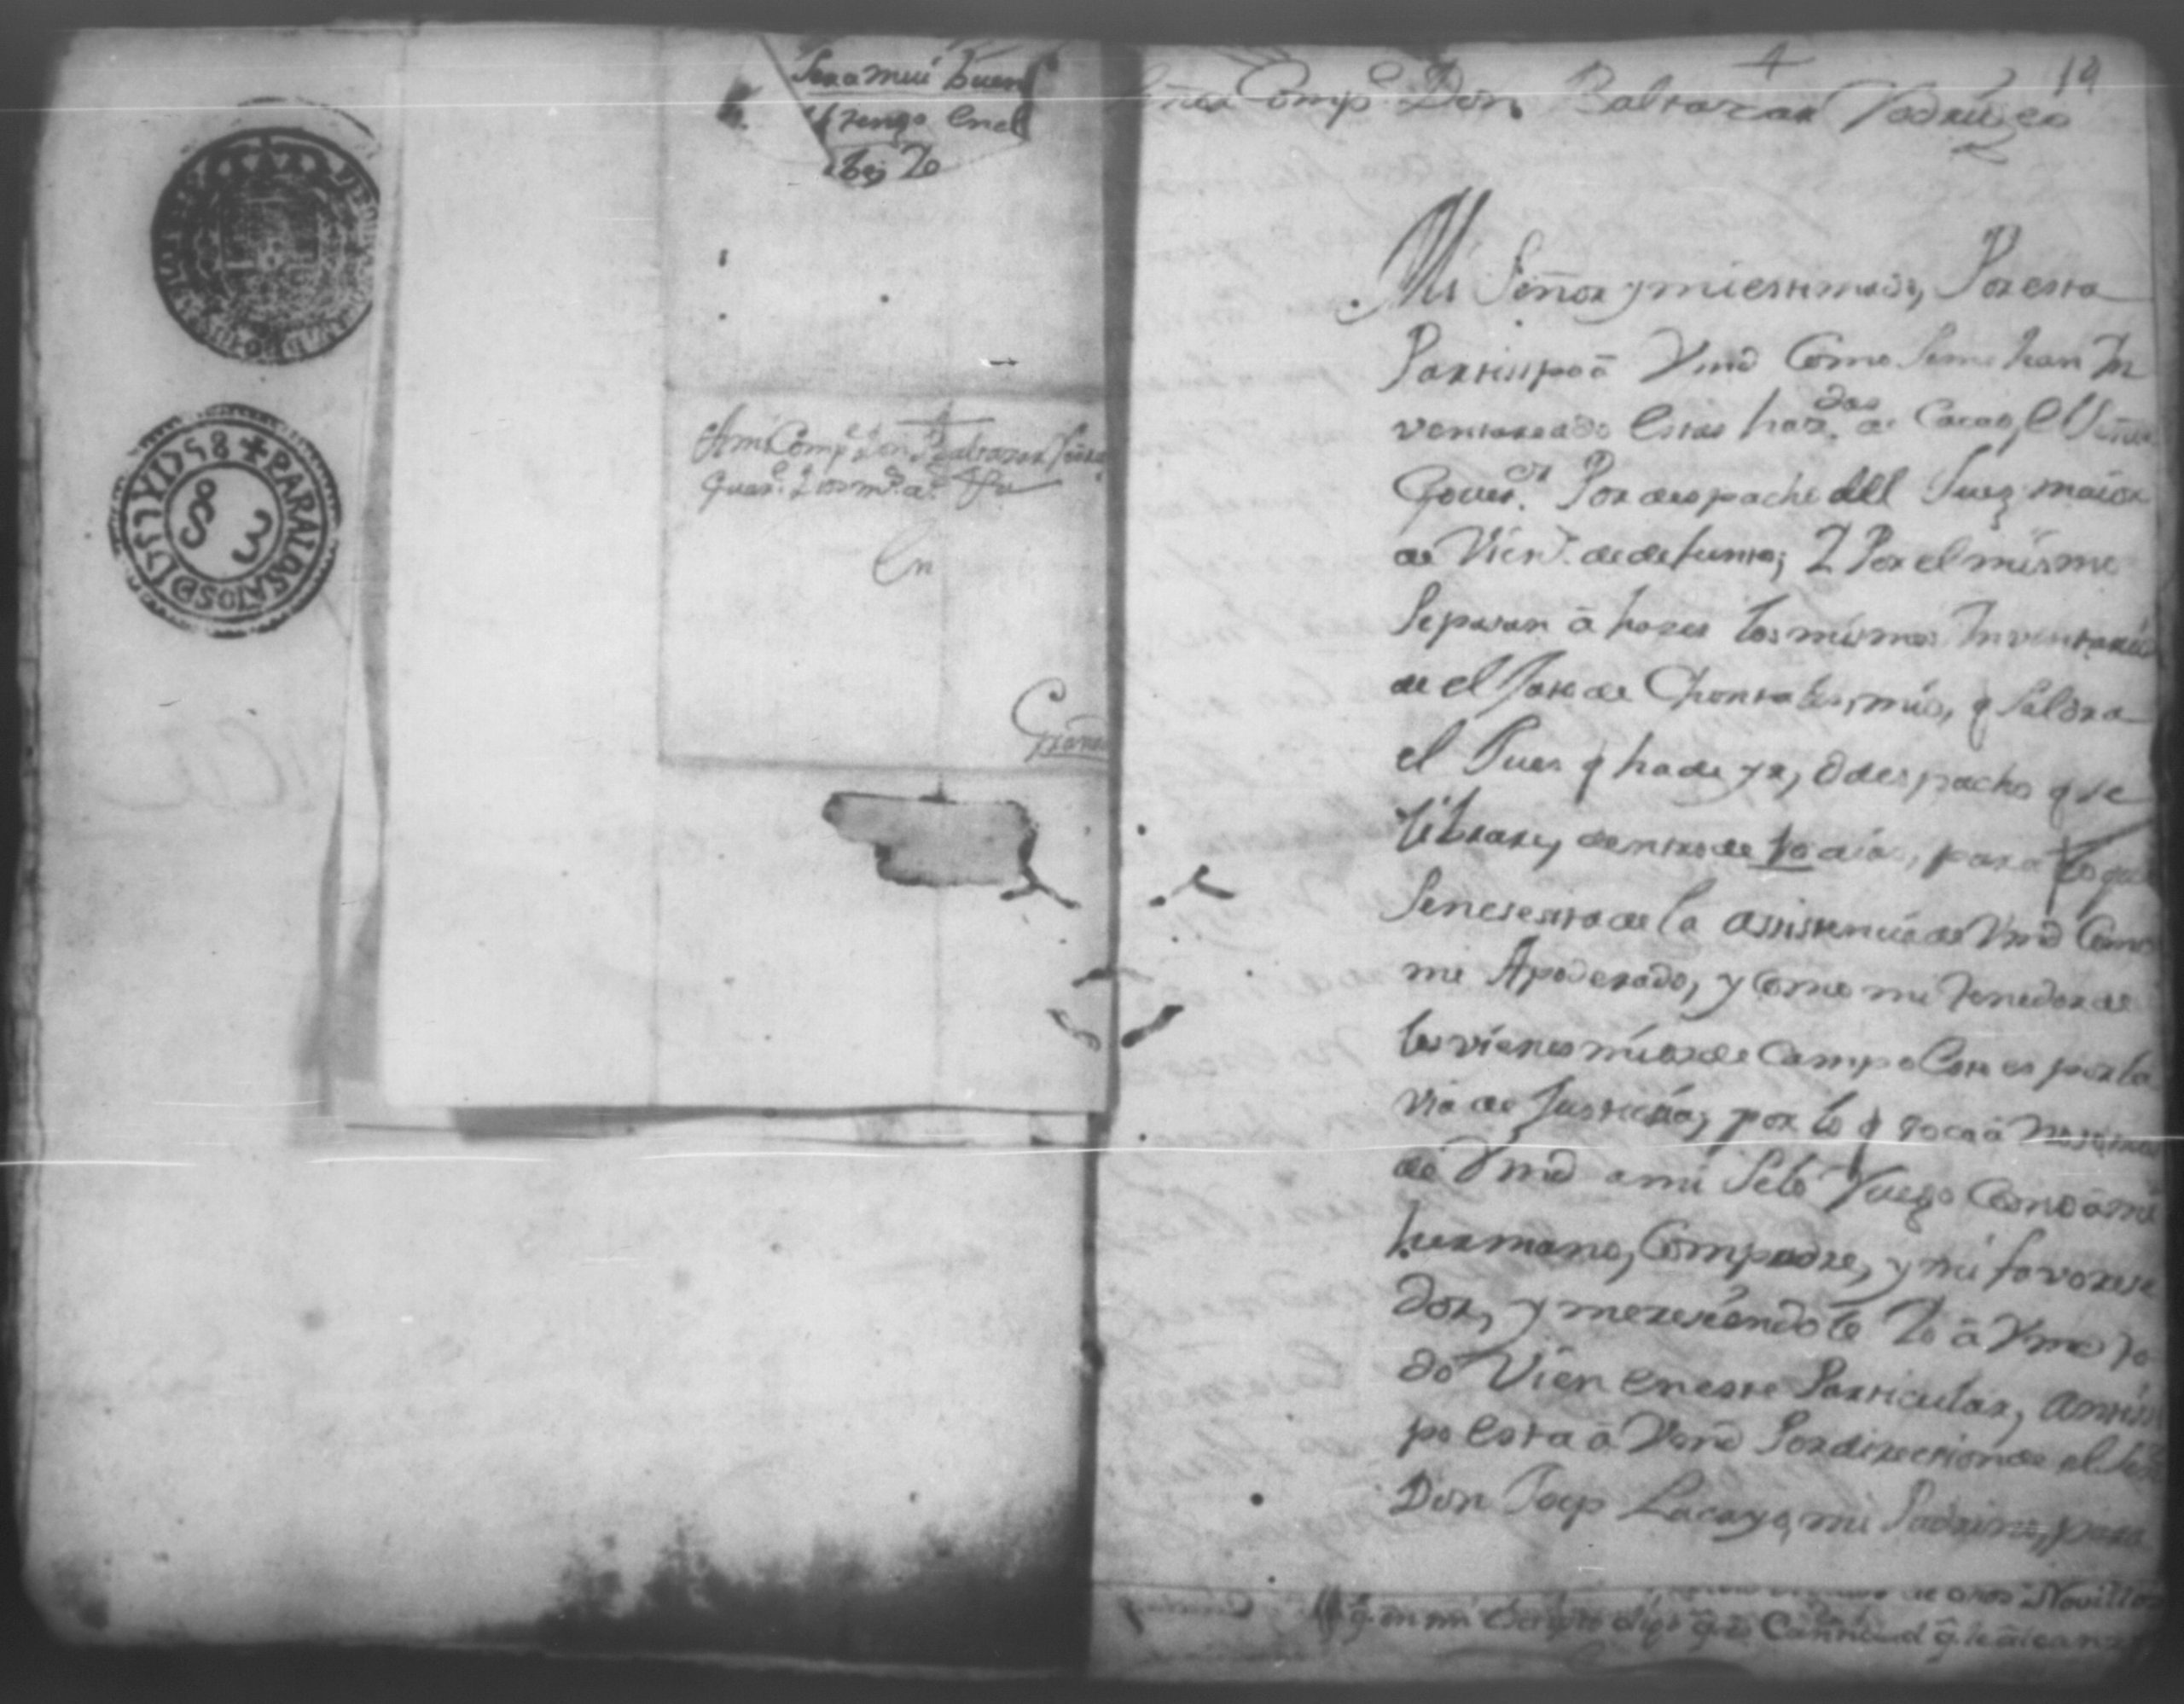 Sera mui buen
q tengo en el
PARA LOS AÑOS D 1757 Y 1758
A mi Comp.e Don Baltazar
guar.e Dios m.s a.s
En
Gran
19
Señor Comp.e Don Baltazar Rodriguez
Mi Señor y mi estimado, Por esta
Partissipo â Vmd Como Seme han In
ventareado Estas haz.das de Cacao, el Señor
Gover.or Por despacho dell Juez maior
de Vien.s de defunto; Y Por el mismo
Sepasan â hazer los mismos Inventarios
de el Jato de Chontales, mio, q Saldra
el Jues q ha de yr, o despacho q se
librare, dentro de 10 dias, para lo qual
Senesesita de la assistencia de Vmd Como
mi Apoderado, y como mi tenedor de
los vienes mios de Campo Esto es por la
via de Justicia, por lo q toca â
de Vmd a mi Selo Ruego Como â mi
hermano, Compadre, y mi favorese
dor, y meresiendole Yo â Vmd to
do Vien en este Particular, antisi
po Esta â Vmd Por direcsion de el Señor
Don Joseph Lacayo, mi Padrino, para
de otros Novillos
q en mi Escripto digo q la Cantidad q le alcanza